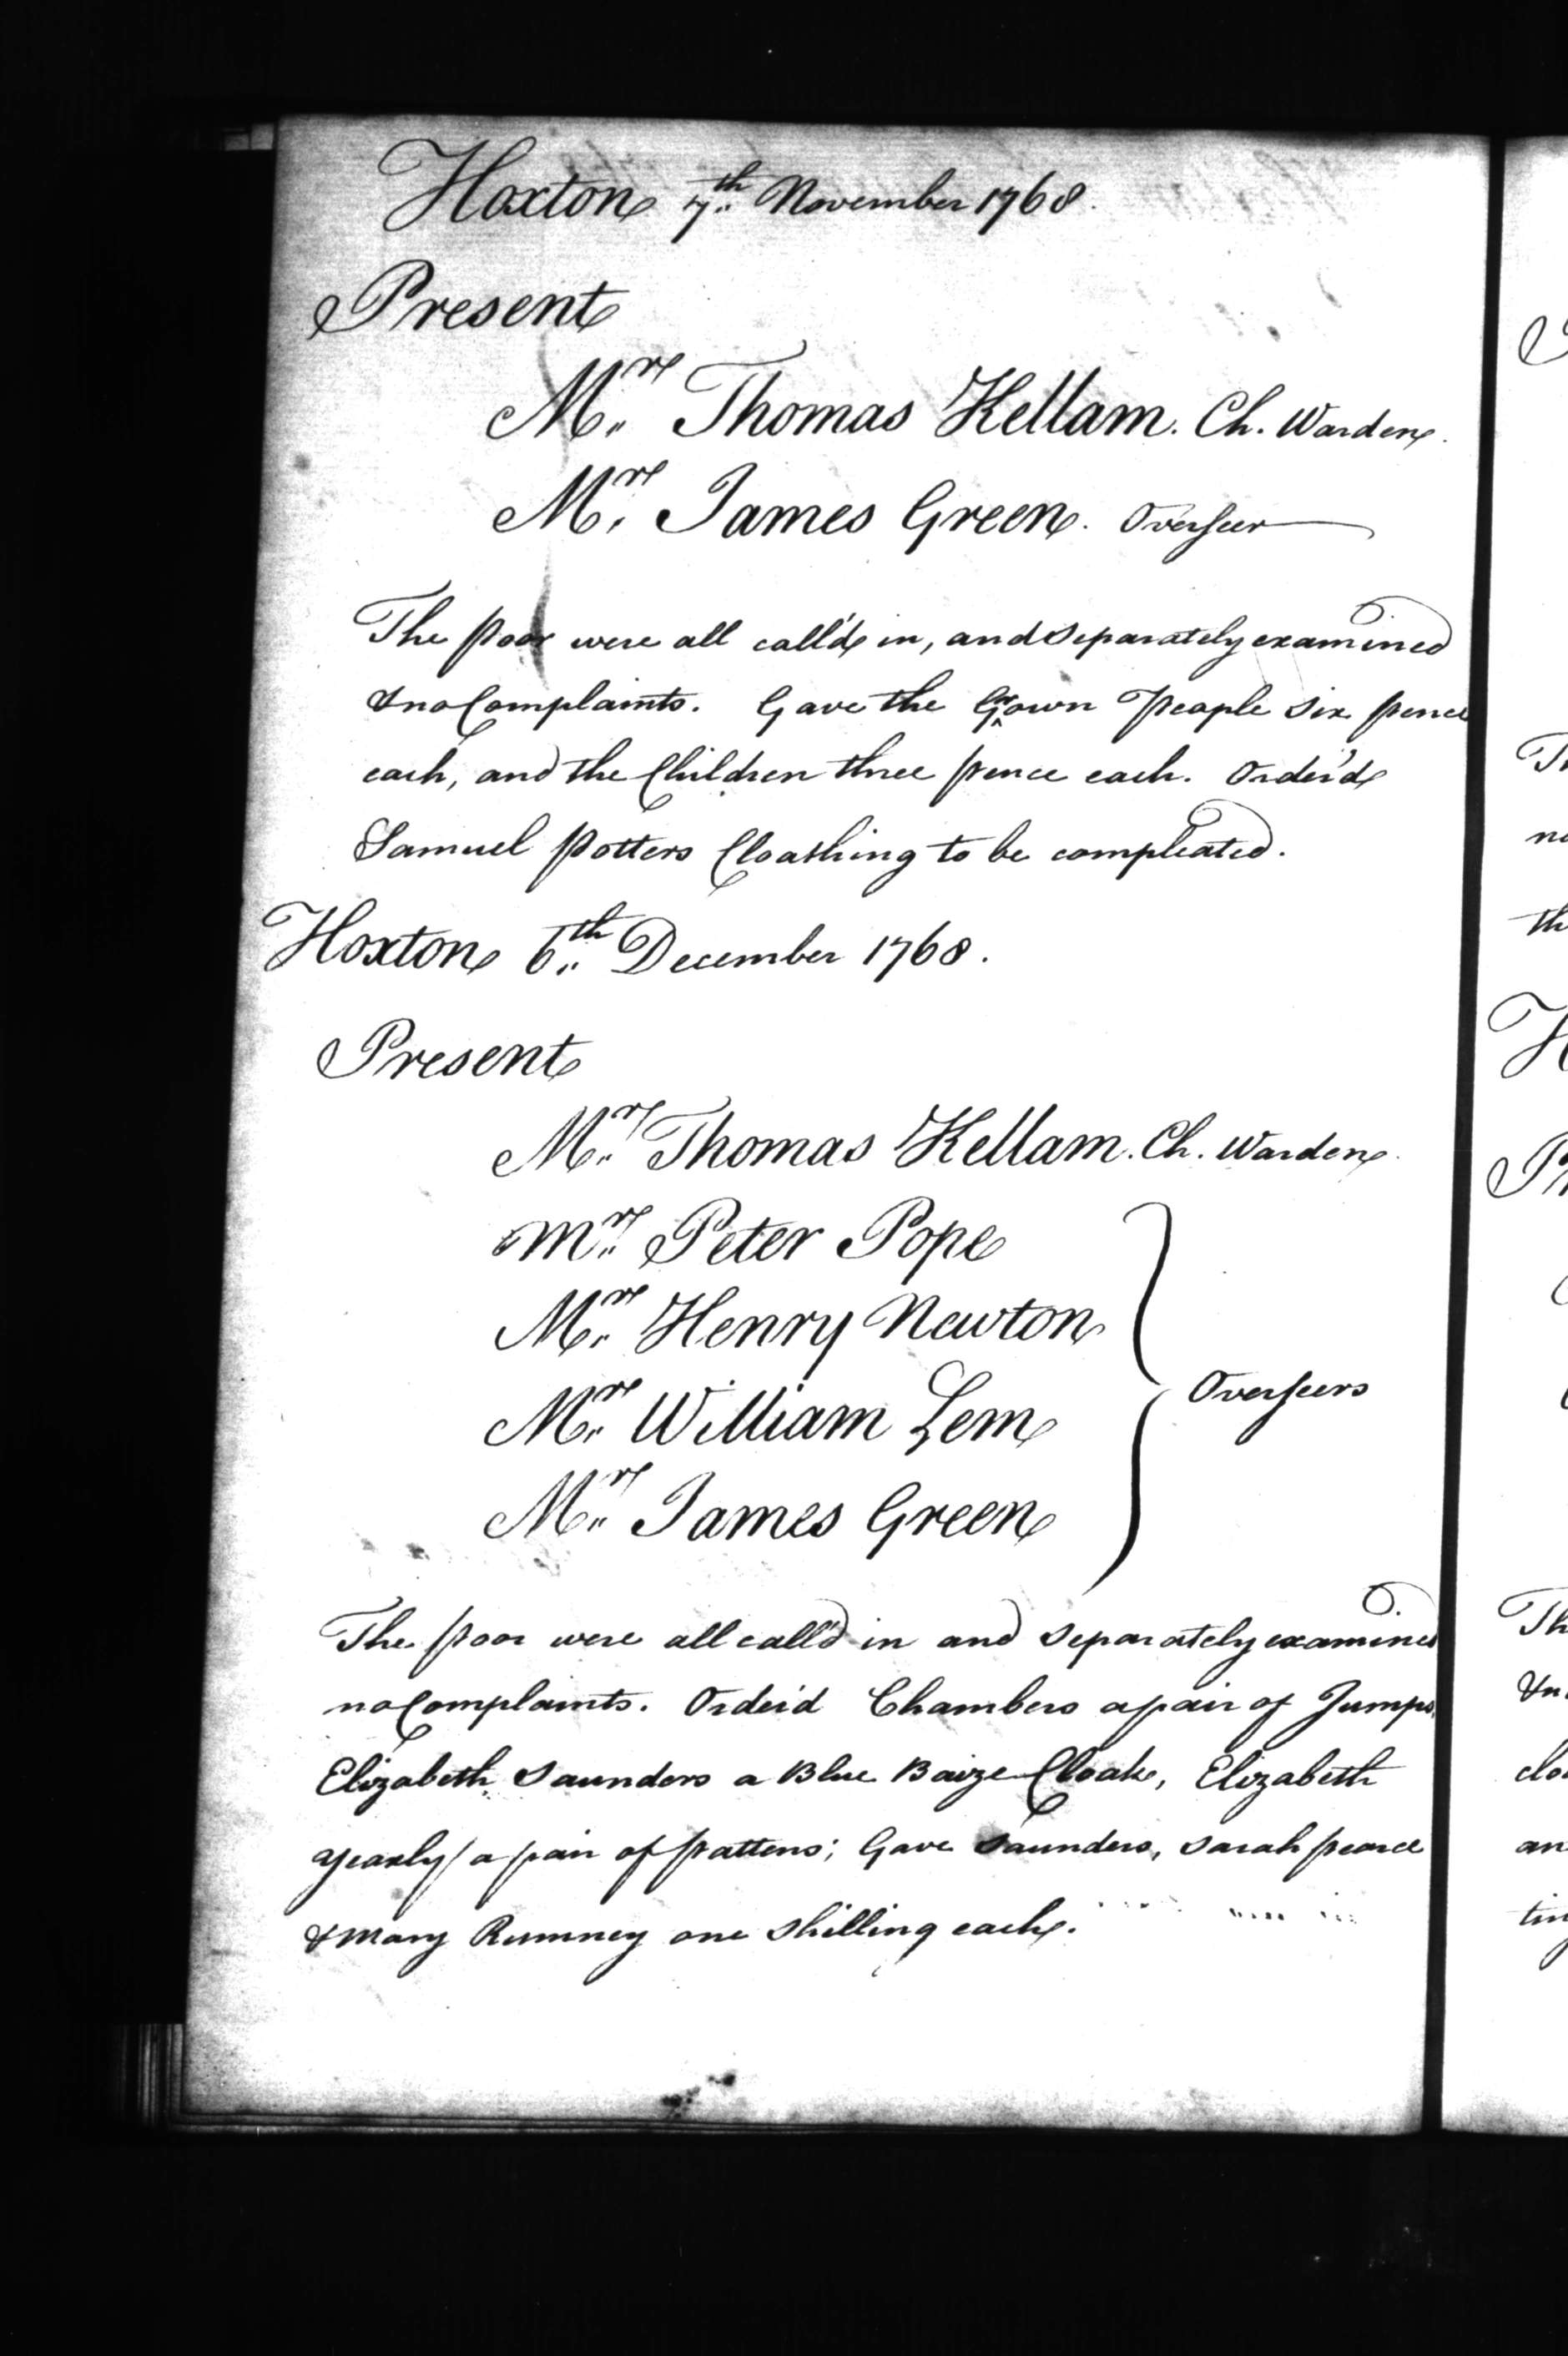 Hoxton 7th November 1768.
Present
Mr Thomas Kellam. Ch. Warden.
Mr James Green. Overseer
The poor were all call'd in, and separately examined
& no Complaints. Gave the Grown People six pence
each, and the Children three pence each. Order'd
Samuel Potters Cloathing to be compleated.
Hoxton 6th December 1768.
Present
Mr Thomas Kellam. Ch. Warden.
Mr Peter Pope
Mr Henry Newton
Mr William Lem
Mr James Green
Overseers
The poor were all call'd in and separately examined
no Complaints. Order'd Chambers a pair of Jumps,
Elizabeth Saunders a Blue Baize Cloak, Elizabeth
Yearly a pair of pattens; Gave Saunders, Sarah pearce
& Mary Rumney one shilling each.